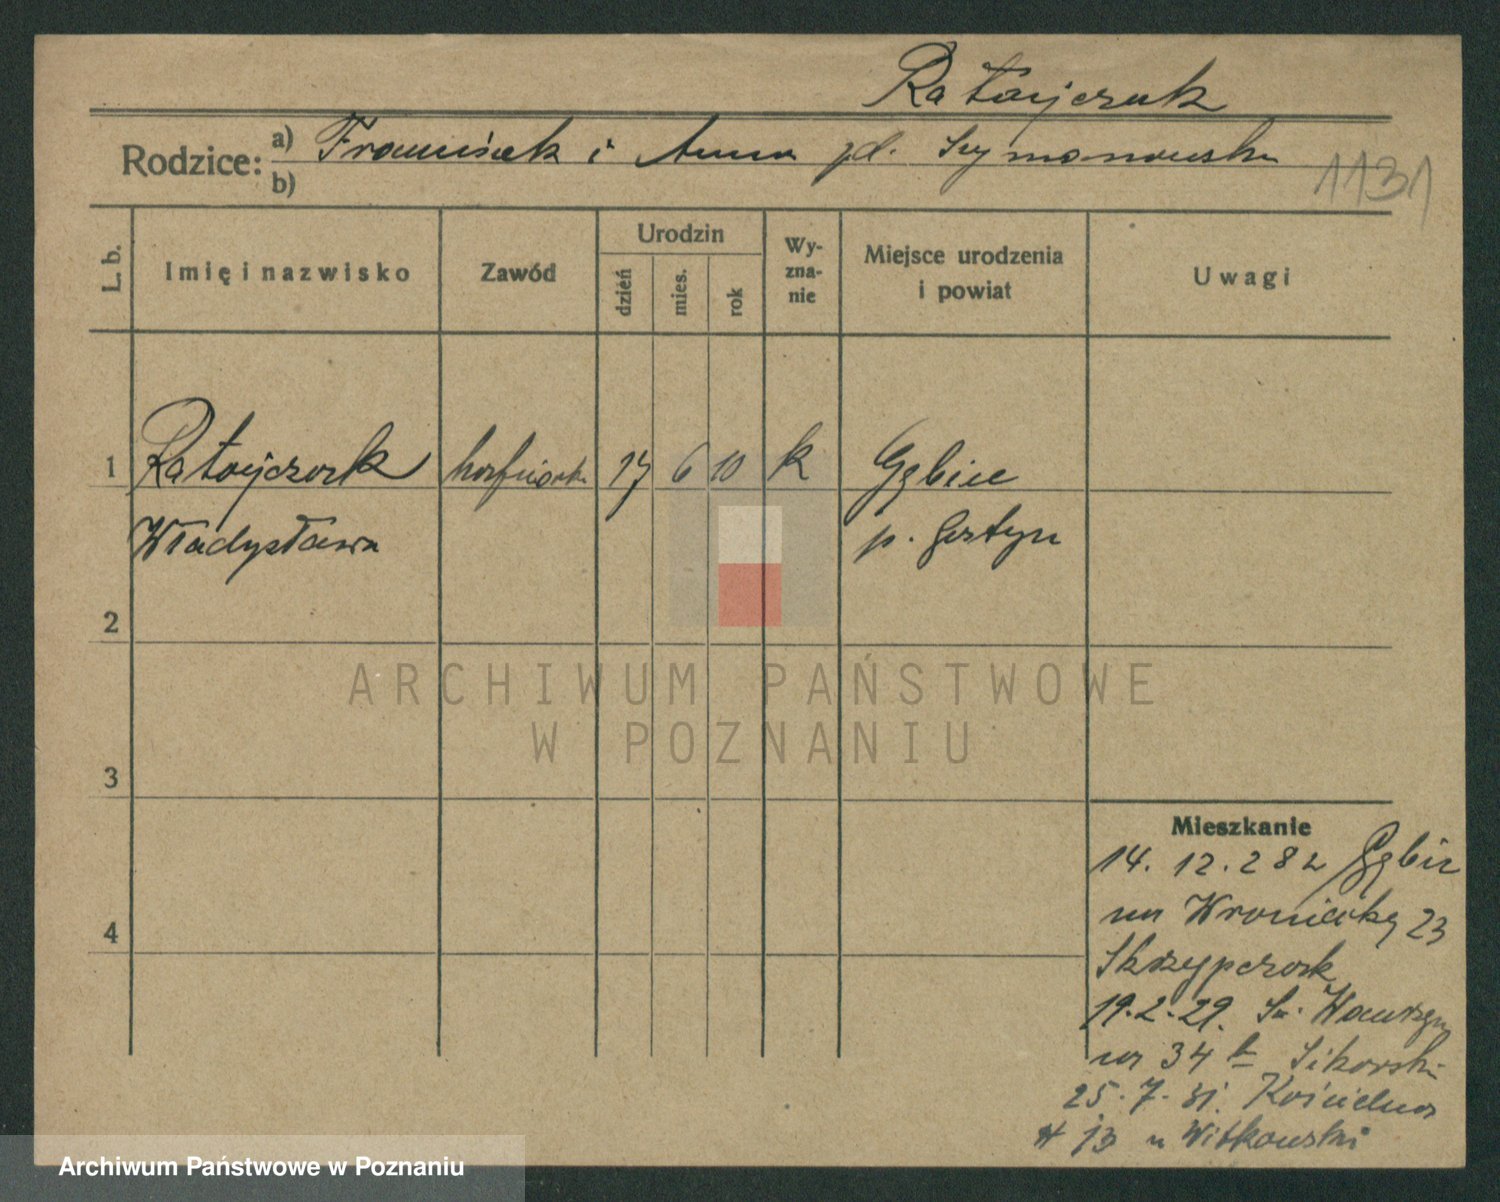 Ratajczak
Rodzice: a) Franciszek i Anna zd. Szymanowska
b)
1131
L. b.
Imię i nazwisko
Zawód
Urodzin
dzień
mies.
rok
Wy-
zna-
nie
Miejsce urodzenia
i powiat
Uwagi
1 Ratajczak 17 6 10 k Gębice
Władysława p. Gostyń
2
ARCHIWUM PAŃSTWOWE
W POZNANIU
3
4
Mieszkanie
14. 12. 28 z Gębic
na Wroniecką 23
Skrzypczak
19.2.29. Św. Wawrzyń
ca 34 Sikorski
25. 7. 31. Kościelna
13 u Witkowski
Archiwum Państwowe w Poznaniu